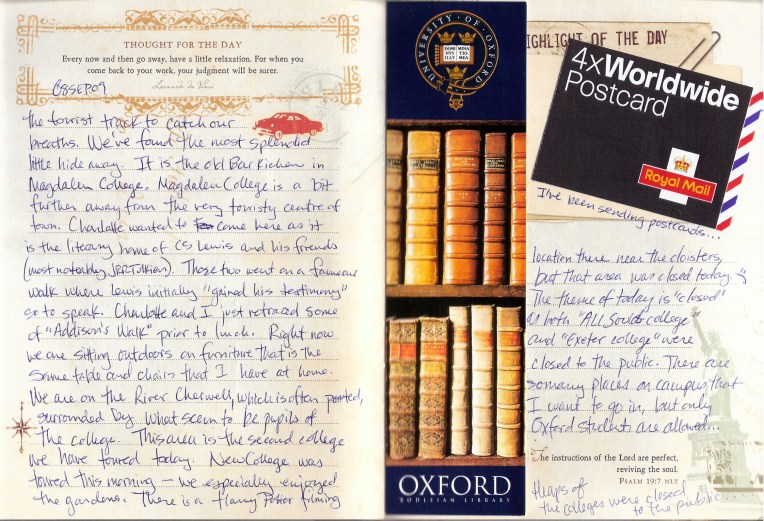 THOUGHT FOR THE DAY
Every now and then go away, have a little relaxation. For when you
come back to your work, your judgment will be surer.
Leonardo da Vinci
08SEP09
the tourist track to catch our
breaths. We've found the most splendid
little hide away. It is the old Bar Kichen in
Magdalen College. Magdalen College is a bit
further away from the very touristy centre of
town. Charlotte wanted to come here as it
is the literary home of CS Lewis and his friends
(most notably JRR Tolkien). Those two went on a famous
walk where Lewis initially "gained his testimony"
so to speak. Charlotte and I just retraced some
of "Addison's Walk" prior to lunch. Right now
we are sitting outdoors on furniture that is the
same table and chairs that I have at home.
We are on the River Cherwell, which is often punted,
surrounded by what seem to be pupils of
the college. This area is the second college
we have toured today. New College was
toured this morning – we especially enjoyed
the gardens. There is a Harry Potter filming
UNIVERSITY · OF · OXFORD
DOMI MINA
NVS TIO
ILLV MEA
OXFORD
BODLEIAN LIBRARY
IGHLIGHT OF THE DAY
4xWorldwide
Postcard
Royal Mail
I've been sending postcards...
location there near the cloisters,
but that area was closed today.
The theme of today is "closed"
as both "All Souls college"
and "Exeter college" were
closed to the public. There are
so many places on campus that
I want to go in, but only
Oxford students are allowed...
The instructions of the Lord are perfect,
reviving the soul.
PSALM 19:7 NLT
Heaps of
the colleges were closed
to the public